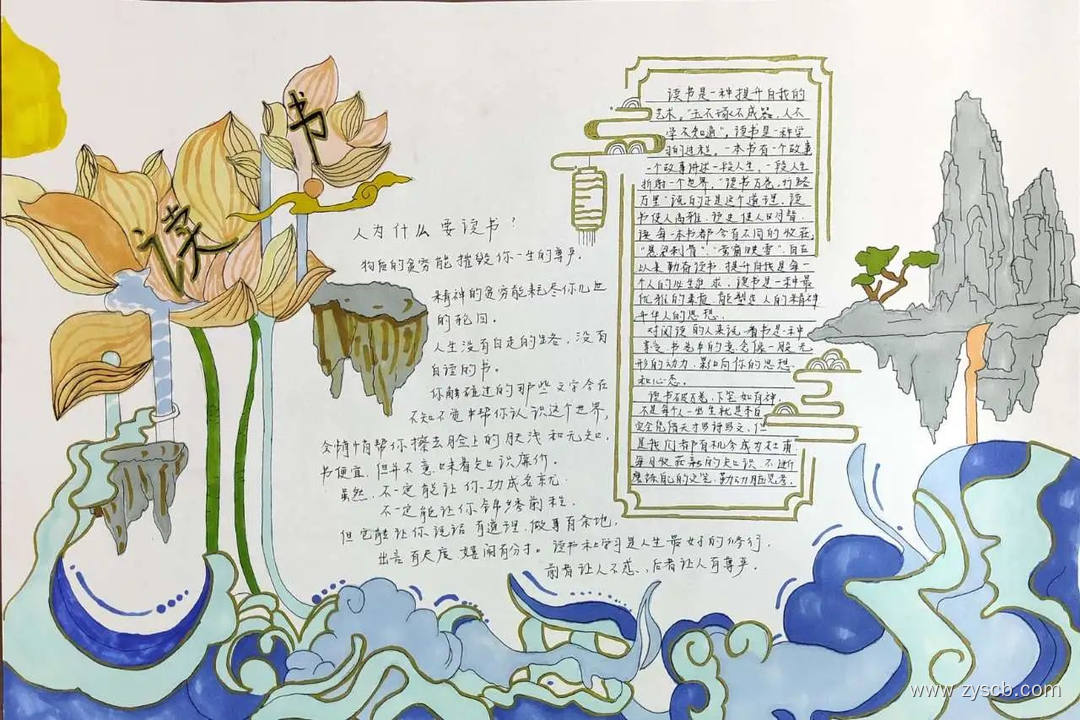 读书
人为什么要读书？
物后的贪穷能摧毁你一生的尊严。
精神的贫穷能耗尽你几世
的轮回。
人生没有白走的路，没有
白读的书。
你触碰过的那些文字会在
不知不觉中帮你认识这个世界，
会悄悄帮你擦去脸上的肤浅和无知。
书便宜，但并不意味着知识廉价。
虽然，不一定能让你功成名就，
不一定能让你锦绣前程，
但它能让你说话有道理，做事有余地，
出言有尺度，嬉闹有分寸。读书和学习是人生最好的修行，
前者让人不惑，后者让人有尊严。
读书是一种提升自我的
艺术。“玉不琢不成器，人不
学不知道”。读书是一种学
习的过程。一本书有一个故事
一个故事讲述一段人生，一段人生
折射一个世界。“读书万卷，行路
万里”说的正是这个道理。读
书使人高雅，
读每一本书都会有不同的收获
“悬梁刺骨”、“萤窗映雪”自古
以来勤奋读书，提升自我是每一
个人的毕生追求，读书是一种最
优雅的素质，能塑造人的精神
升华人的思想。
对阅读的人来说，看书是一种
享受，书卷中的意念像一股无
形的动力，影响你的思想
和心态。
读书破万卷，下笔如有神，
不是每个人一出生就是李白
完全凭借天才
是我们都有机会成为杜甫
每日收获新的知识，不断
磨练自己的文笔，勤动脑思考。
www.zyscb.com